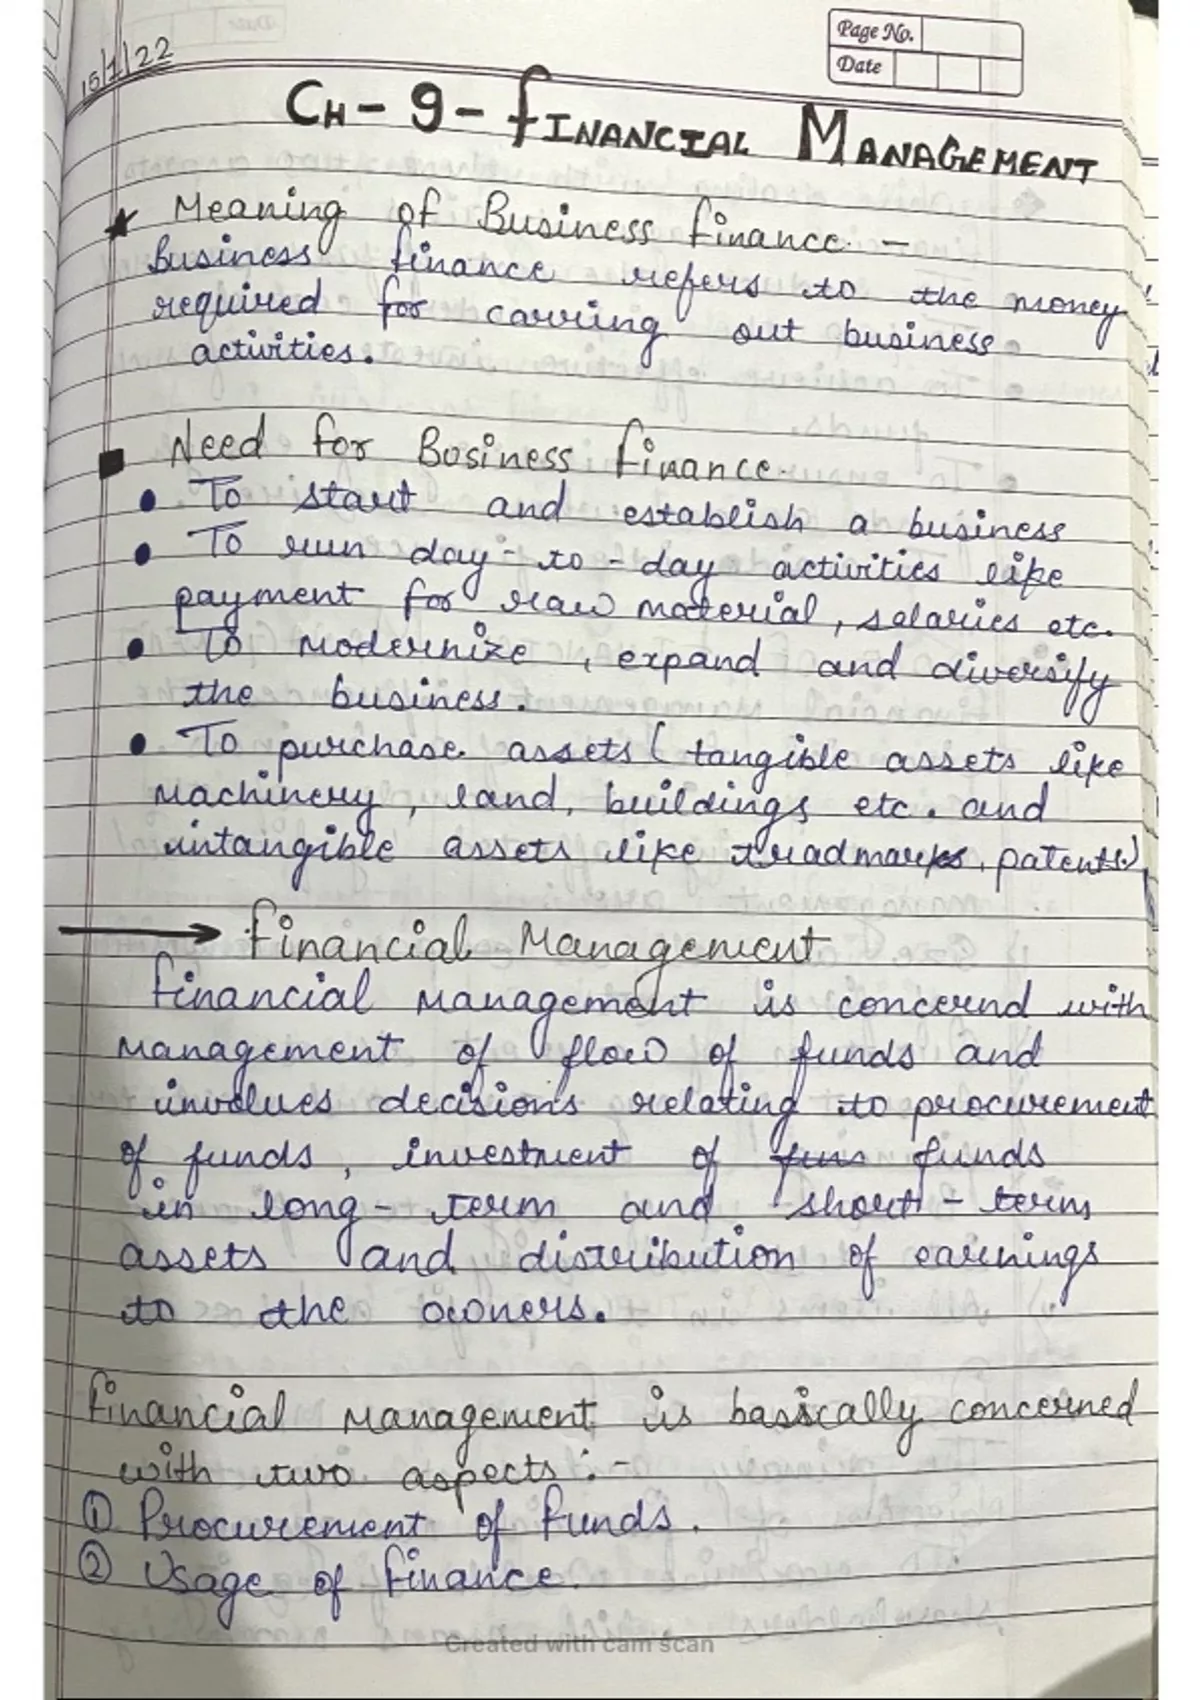 Page No.
Date
15/1/22
CH - 9 - FINANCIAL MANAGEMENT
★ Meaning of Business finance. -
Business finance refers to the money
required for carriing out business
activities.
■ Need for Business finance.
• To start and establish a business
• To run day-to-day activities like
payment for raw material, salaries etc.
• To modernize, expand and diversify
the business.
• To purchase assets (tangible assets like
machinery, land, buildings etc. and
intangible assets like tradmarks, patents.)
→ financial Management
financial management is concernd with
management of flow of funds and
involves decisions relating to procurement
of funds, investment of funs funds
in long-term and short-term
assets and distribution of earnings
to the owners.
financial management is basically concerned
with two aspects :-
① Procurement of funds.
② Usage of finance.
Created with cam scan